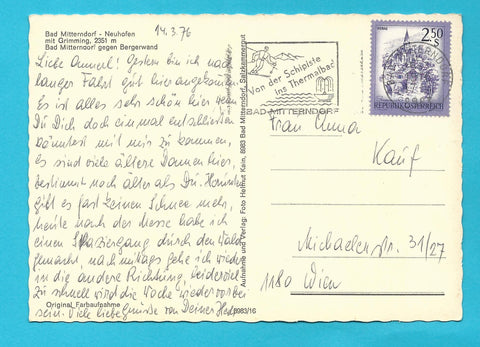 Bad Mitterndorf - Neuhofen
mit Grimming, 2351 m
Bad Mitterndorf gegen Bergerwand
14.3.76
Liebe Annerl! Gestern bin ich nach
langer Fahrt gut hier angekommen.
Es ist alles sehr schön hier wenn
Du Dich doch einmal entschließen
könntest mit mir zu kommen,
es sind viele ältere Damen hier,
bestimmt noch älter als Du. Herunten
gibt es fast keinen Schnee mehr,
heute nach der Messe habe ich
einen Spaziergang durch den Wald
gemacht, nachmittags gehe ich wieder
in die andere Richtung, leider wird
zu schnell wird die Woche wieder vorbei
sein. Viele liebe Grüsse von Deiner
Original Farbaufnahme
6983/16
Aufnahme und Verlag: Foto Helmut Kain, 8983 Bad Mitterndorf, Salzkammergut
Von der Schipiste
ins Thermalbad
BAD MITTERNDORF
MURAU
2.50
S
REPUBLIK ÖSTERREICH
Frau Anna
Kauf
Michaelerstr. 31/27
1180 Wien